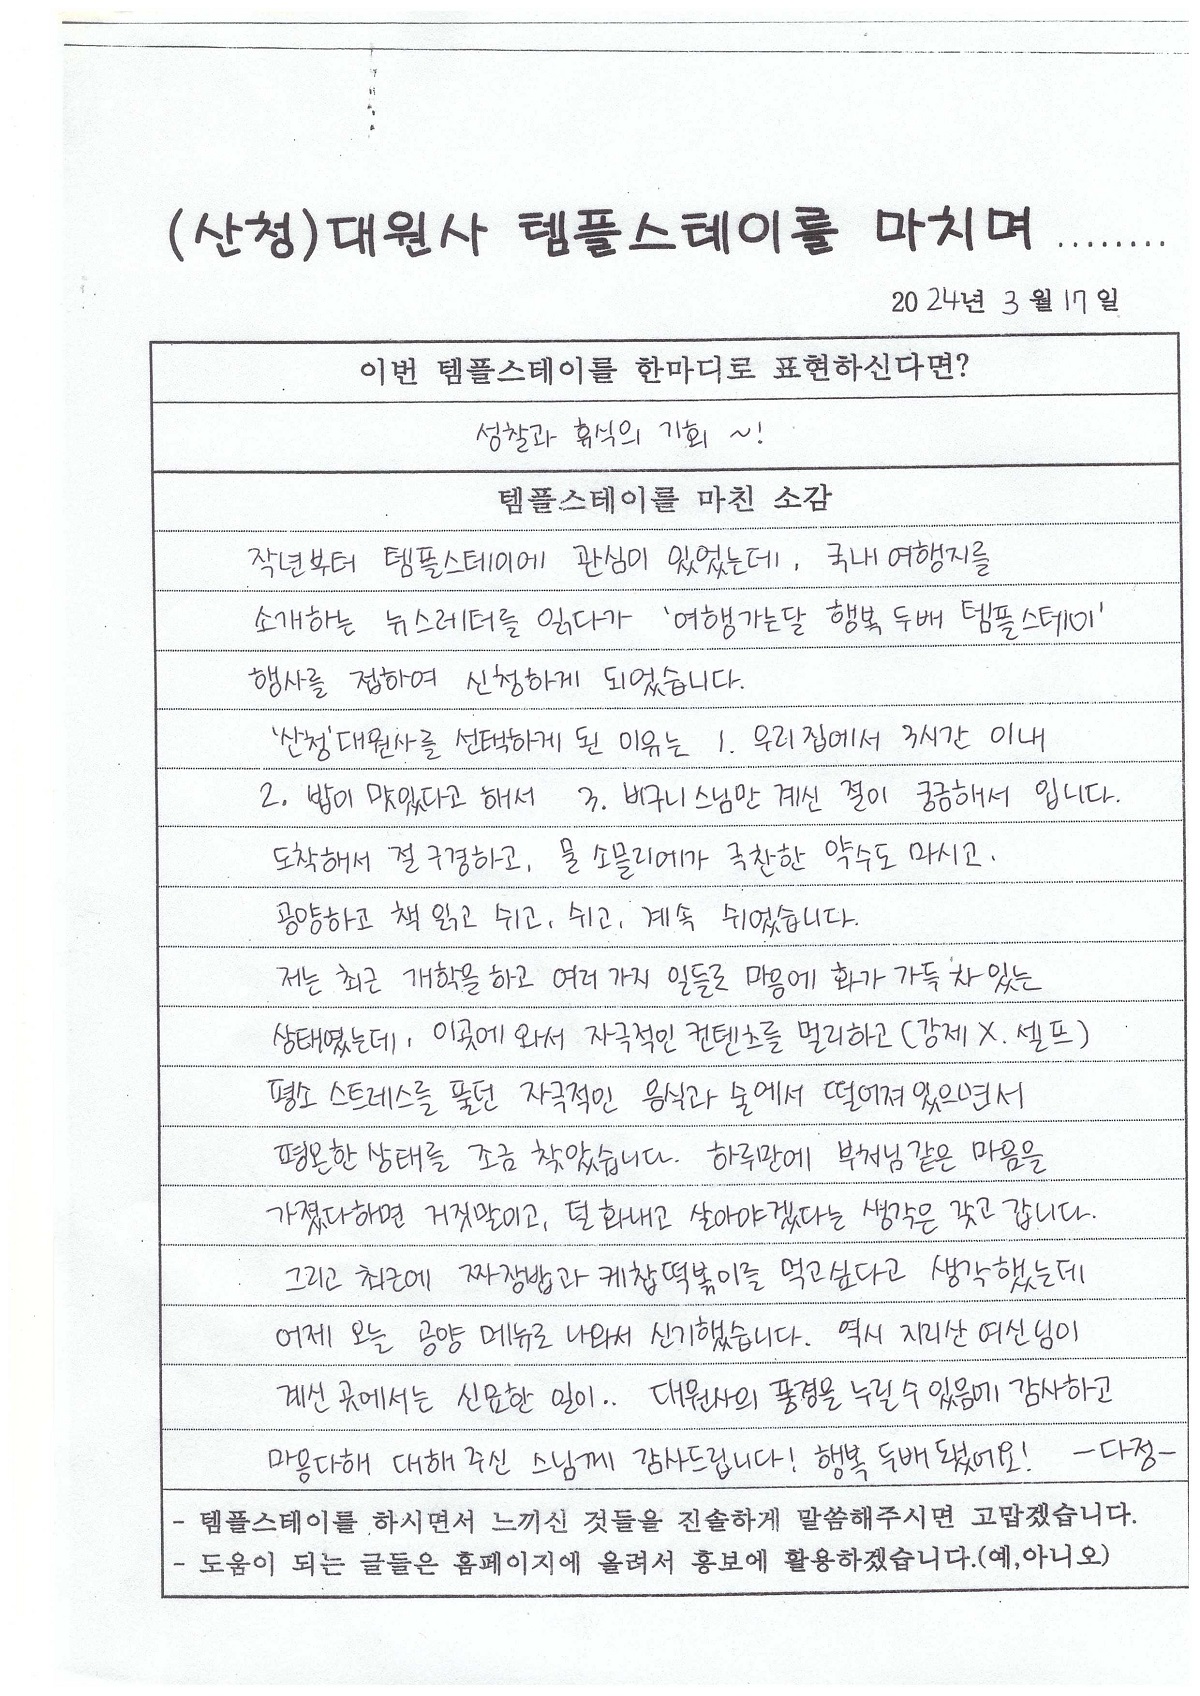 (산청)대원사 템플스테이를 마치며 ........
2024년 3월 17일
이번 템플스테이를 한마디로 표현하신다면?
성찰과 휴식의 기회 ~!
템플스테이를 마친 소감
작년부터 템플스테이에 관심이 있었는데, 국내 여행지를
소개하는 뉴스레터를 읽다가 '여행가는달 행복 두배 템플스테이'
행사를 접하여 신청하게 되었습니다.
'산청'대원사를 선택하게 된 이유는 1. 우리집에서 3시간 이내
2. 밥이 맛있다고 해서 3. 비구니 스님만 계신 절이 궁금해서 입니다.
도착해서 절 구경하고, 물 소믈리에가 극찬한 약수도 마시고,
공양하고 책 읽고 쉬고, 쉬고, 계속 쉬었습니다.
저는 최근 개학을 하고 여러 가지 일들로 마음에 화가 가득 차 있는
상태였는데, 이곳에 와서 자극적인 컨텐츠를 멀리하고 (강제 X. 셀프)
평소 스트레스를 풀던 자극적인 음식과 술에서 떨어져 있으면서
평온한 상태를 조금 찾았습니다. 하루만에 부처님 같은 마음을
가졌다하면 거짓말이고, 덜 화내고 살아야겠다는 생각은 갖고 갑니다.
그리고 최근에 짜장밥과 케찹떡볶이를 먹고싶다고 생각했는데
어제 오늘 공양 메뉴로 나와서 신기했습니다. 역시 지리산 여신님이
계신 곳에서는 신묘한 일이.. 대원사의 풍경을 누릴 수 있음에 감사하고
마음다해 대해 주신 스님께 감사드립니다! 행복 두배 됐어요! -다정-
- 템플스테이를 하시면서 느끼신 것들을 진솔하게 말씀해주시면 고맙겠습니다.
- 도움이 되는 글들은 홈페이지에 올려서 홍보에 활용하겠습니다.(예,아니오)